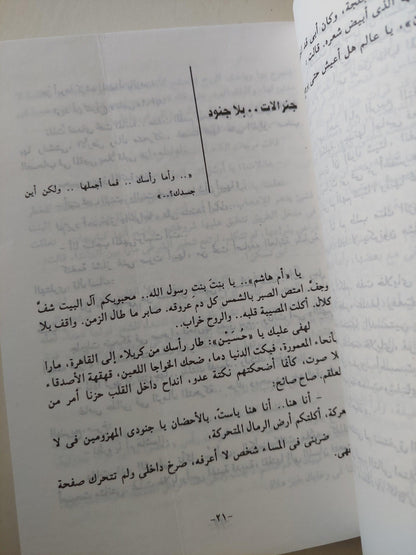 جنرالات .. بلا جنود
«.. وأما رأسك .. فما أجملها .. ولكن أين
جسدك؟..»
يا «أم هاشم».. يا بنت بنت رسول الله.. محبوبكم آل البيت شفَّ
وجفَّ. امتص الصبر بالشمس كل دم عروقه. صابر ما طال الزمن. واقف بلا
كلال. أكلت المصيبة قلبه.. والروح خراب..
لهفى عليك يا «حُسَيْن»: طار رأسك من كربلاء إلى القاهرة، مارا
بأنحاء المعمورة، فبكت الدنيا دما، ضحك الخواجا اللعين، قهقهة الأصدقاء
بلا صوت، كأنما أضحكتهم نكتة عدو، انداح داخل القلب حزنا أمر من
العلقم. صاح صائح:
- أنا هنا.. أنا هنا ياست. بالأحضان يا جنودى المهزومين فى لا
معركة، أكلتكم أرض الرمال المتحركة.
ضربنى فى المساء شخص لا أعرفه، صرخ داخلى ولم تتحرك صفحة
-٢١-
وكان أبى
الذى أبيض شعره. قالت
يا عالم هل أعيش حتى